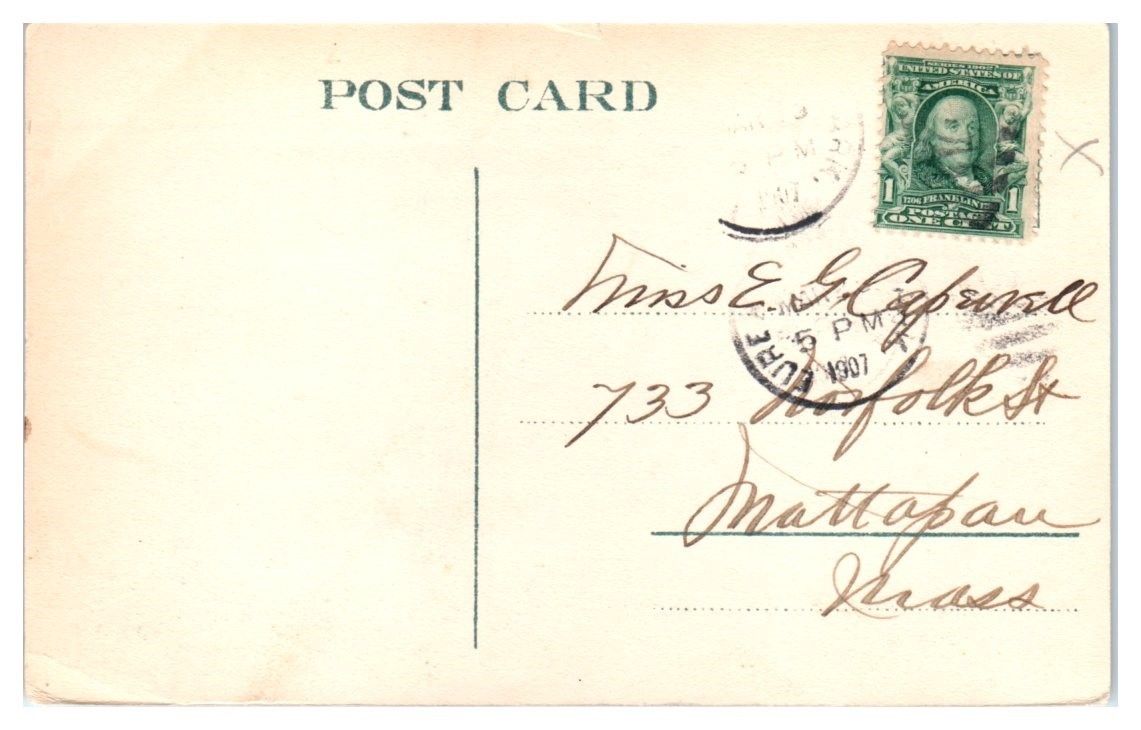 POST CARD
SERIES 1902
UNITED STATES OF
AMERICA
1 1706 FRANKLIN 1
POSTAGE
ONE CENT
ARK.
PM
1907
Miss E. G. Capewell
EURE MAR
5 PM
1907
733 Norfolk St
Mattapan
Mass
X